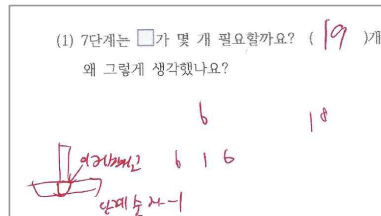 (1) 7단계는 □가 몇 개 필요할까요? ( 19 )개
왜 그렇게 생각했나요?
6
18
6 1 6
단계 숫자-1